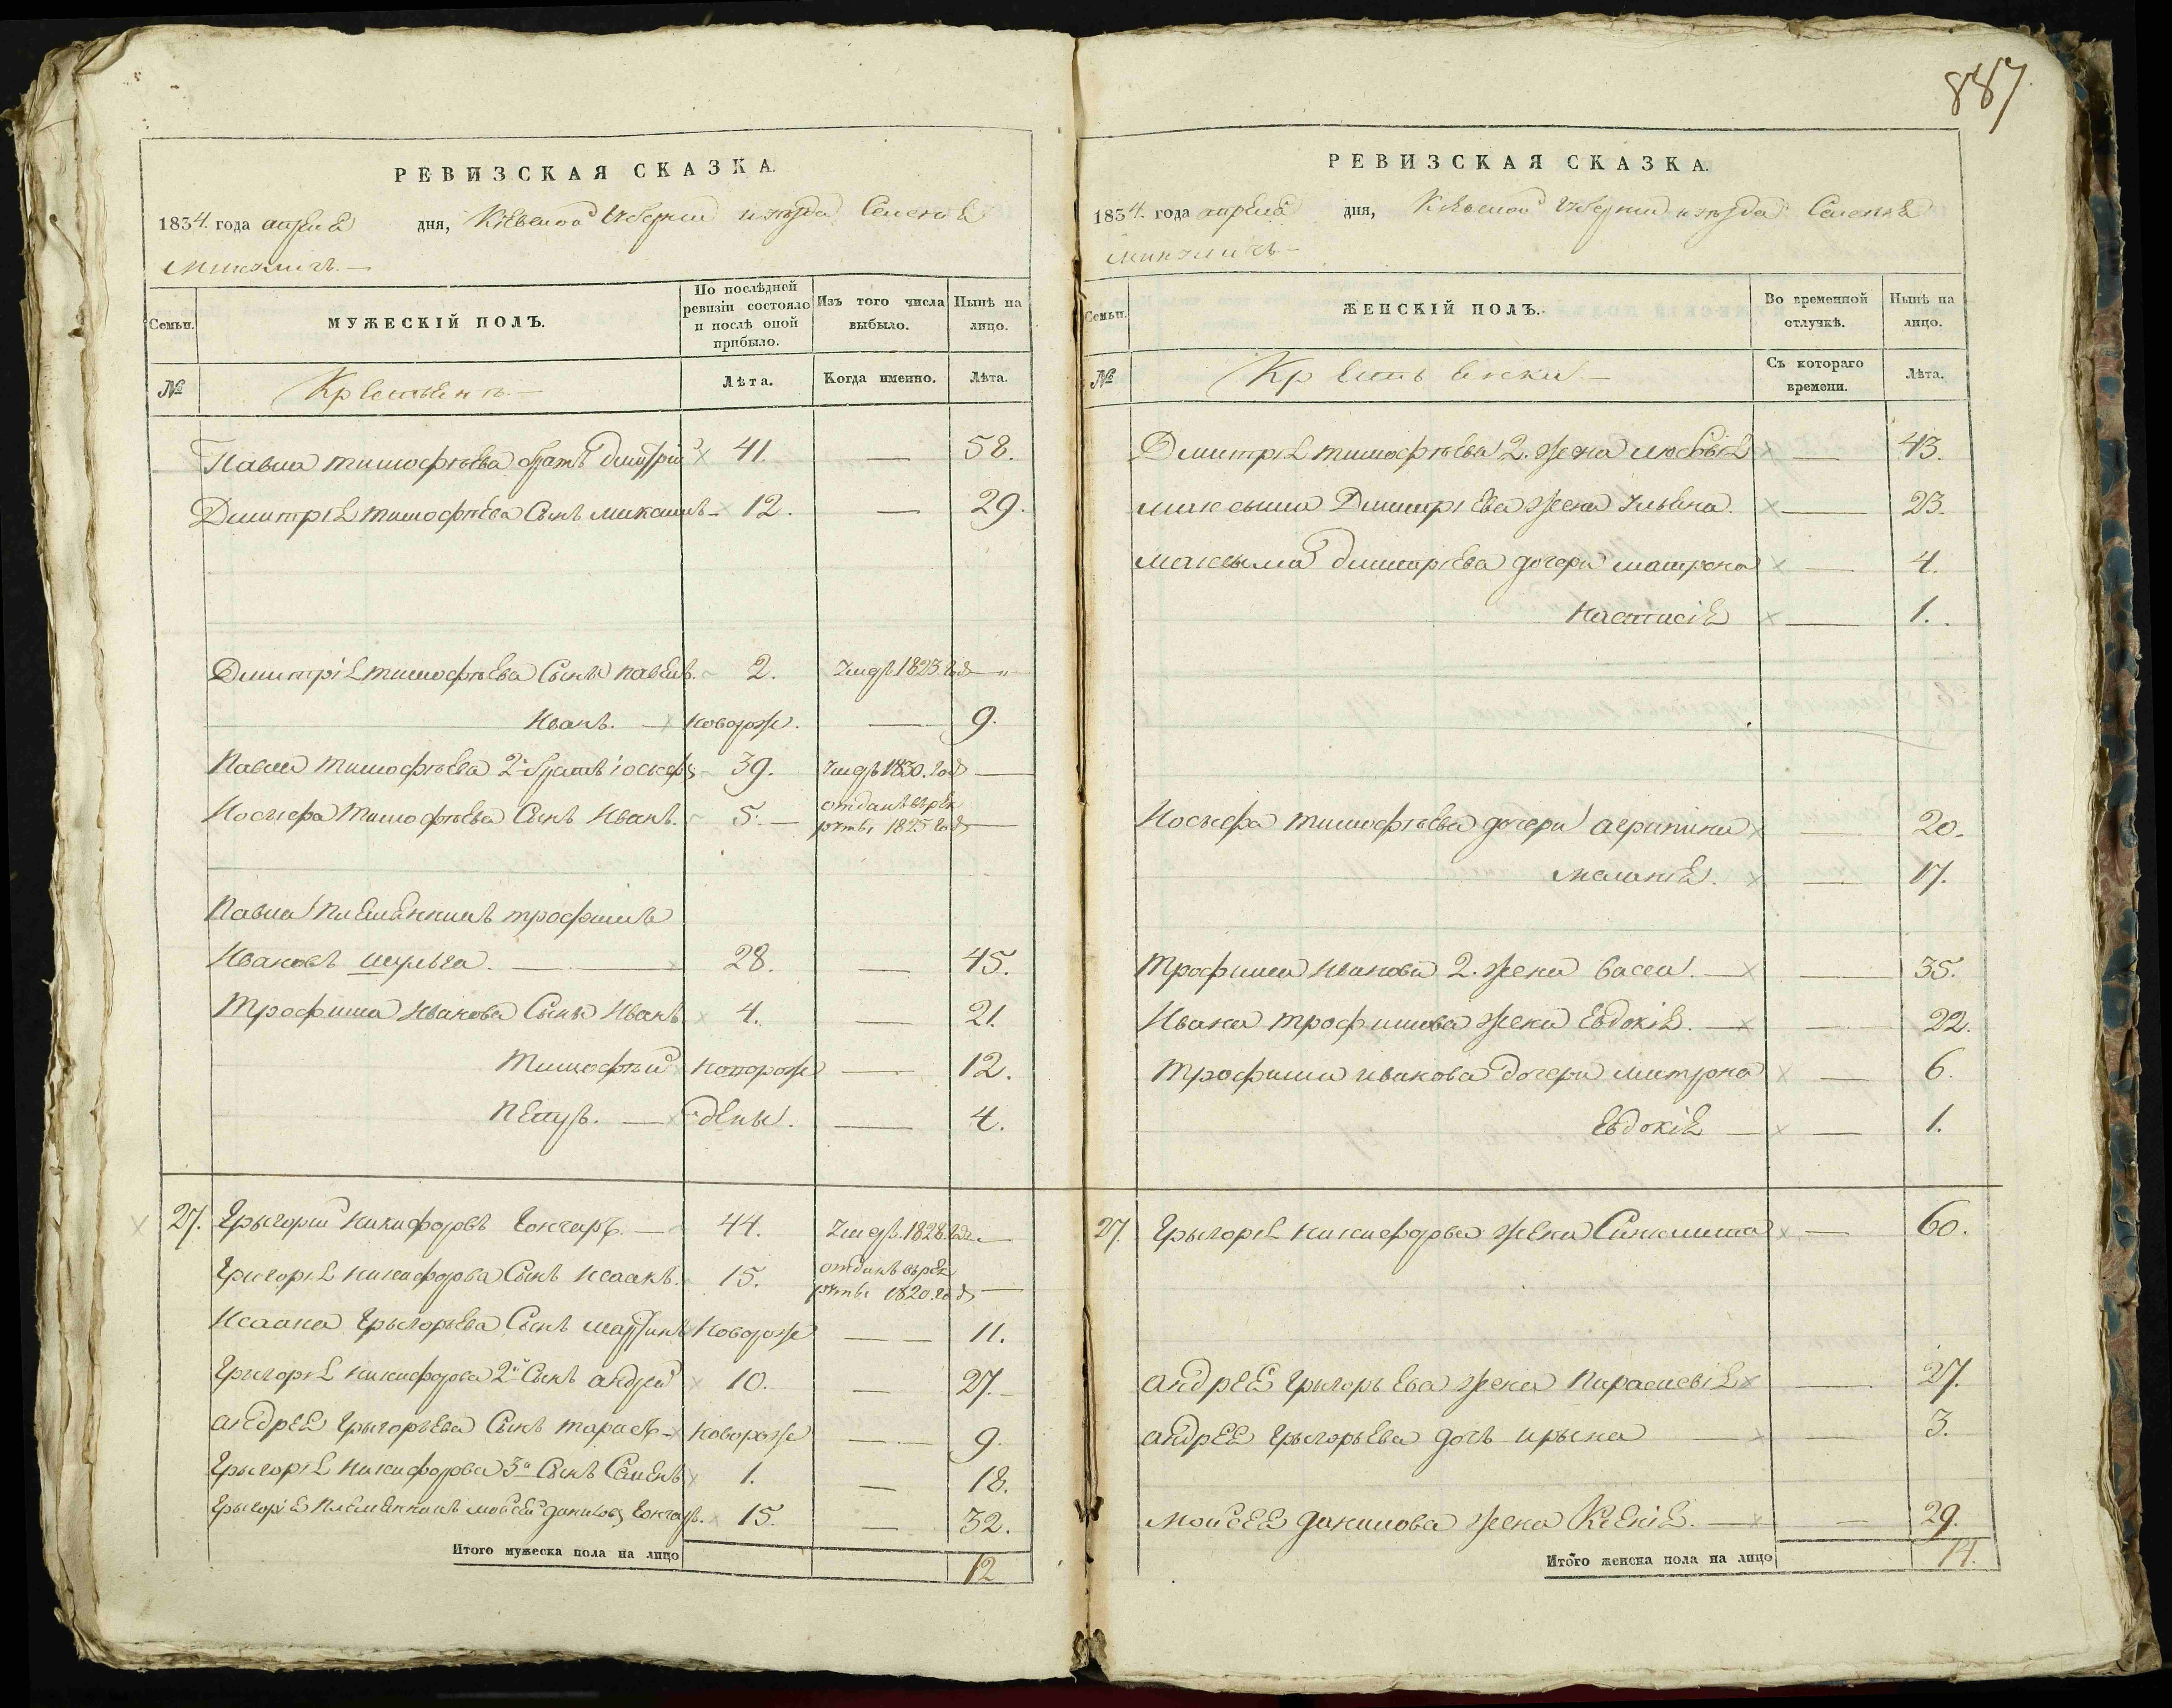 РЕВИЗСКАЯ СКАЗКА.
1834. года апреля дня, Кіевской Губерніи и уезда Селенія
Микуличъ. —
Семьи.
МУЖЕСКІЙ ПОЛЪ.
По послѣдней ревизіи состояло и послѣ оной прибыло.
Изъ того числа выбыло.
Нынѣ на лицо.
№
Крестьенъ. —
Лѣта.
Когда именно.
Лѣта.
Павла тимофѣева братъ дмитрій 41. — 58.
Дмитрія тимофѣева Сынъ максимъ — 12. — 29.
Дмитрія тимофѣева Сынъ павелъ. 2. Умеръ 1823. года — „ —
Иванъ. — новорож. — 9.
Павла тимофѣева 2й братъ іосифъ 39. Умеръ 1830. года —
Иосифа тимофѣева Сынъ Иванъ. 5. — отданъ въ рек
руты 1825 года —
Павла племенникъ трофимъ
Ивановъ — 28. — 45.
Трофима Иванова Сынъ Иванъ 4. — 21.
Тимофѣй новорож — 12.
Петръ. — дены. — 4.
27. Грыгорій никифоровъ Гончаръ. — 44. Умеръ. 1828. года —
Грыгорія никифорова Сынъ Исаакъ. 15. отданъ въ рек
руты 1820. года —
Исаака Грыгорьева Сынъ мартинъ новорож — — 11.
Грыгорія никифорова 2й Сынъ андрей 10. — 27. —
андрея Грыгорьева Сынъ тарасъ — новорож — — 9.
Грыгорія никифорова 3й Сынъ Семенъ 1. — 18.
Грыгорія племенникъ мойсей данилов Гончаръ. 15. — 32.
Итого мужеска пола на лицо 12
887.
РЕВИЗСКАЯ СКАЗКА.
1834. года апреля дня, Кіевской Губерніи и уезда Селенія
Микуличъ —
Семьи.
ЖЕНСКІЙ ПОЛЪ.
Во временной отлучкѣ.
Нынѣ на лицо.
№
Крестьенски. —
Съ котораго времени.
Лѣта.
Дмитрія тимофѣева 2. жена любвія — 43.
максыма Дмитріева жена Ульяна. — 23.
максыма дмитріева дочери матрона — 4.
настасія — 1.
Иосифа тимофѣева дочери агрипина — 20.
маланія. — 17.
Трофима иванова 2. жена васса. — — 35.
Ивана трофимова жена Евдокія. — — 22.
Трофима иванова дочери матрона — 6.
Евдокія — — 1.
27. Грыгорія никифорова жена — 60.
андрея Грыгорьева жена параскевія — 27.
андрея Грыгорьева дочь ирына — — 3.
мойсея данилова жена Ксенія. — — 29.
Итого женска пола на лицо 14.